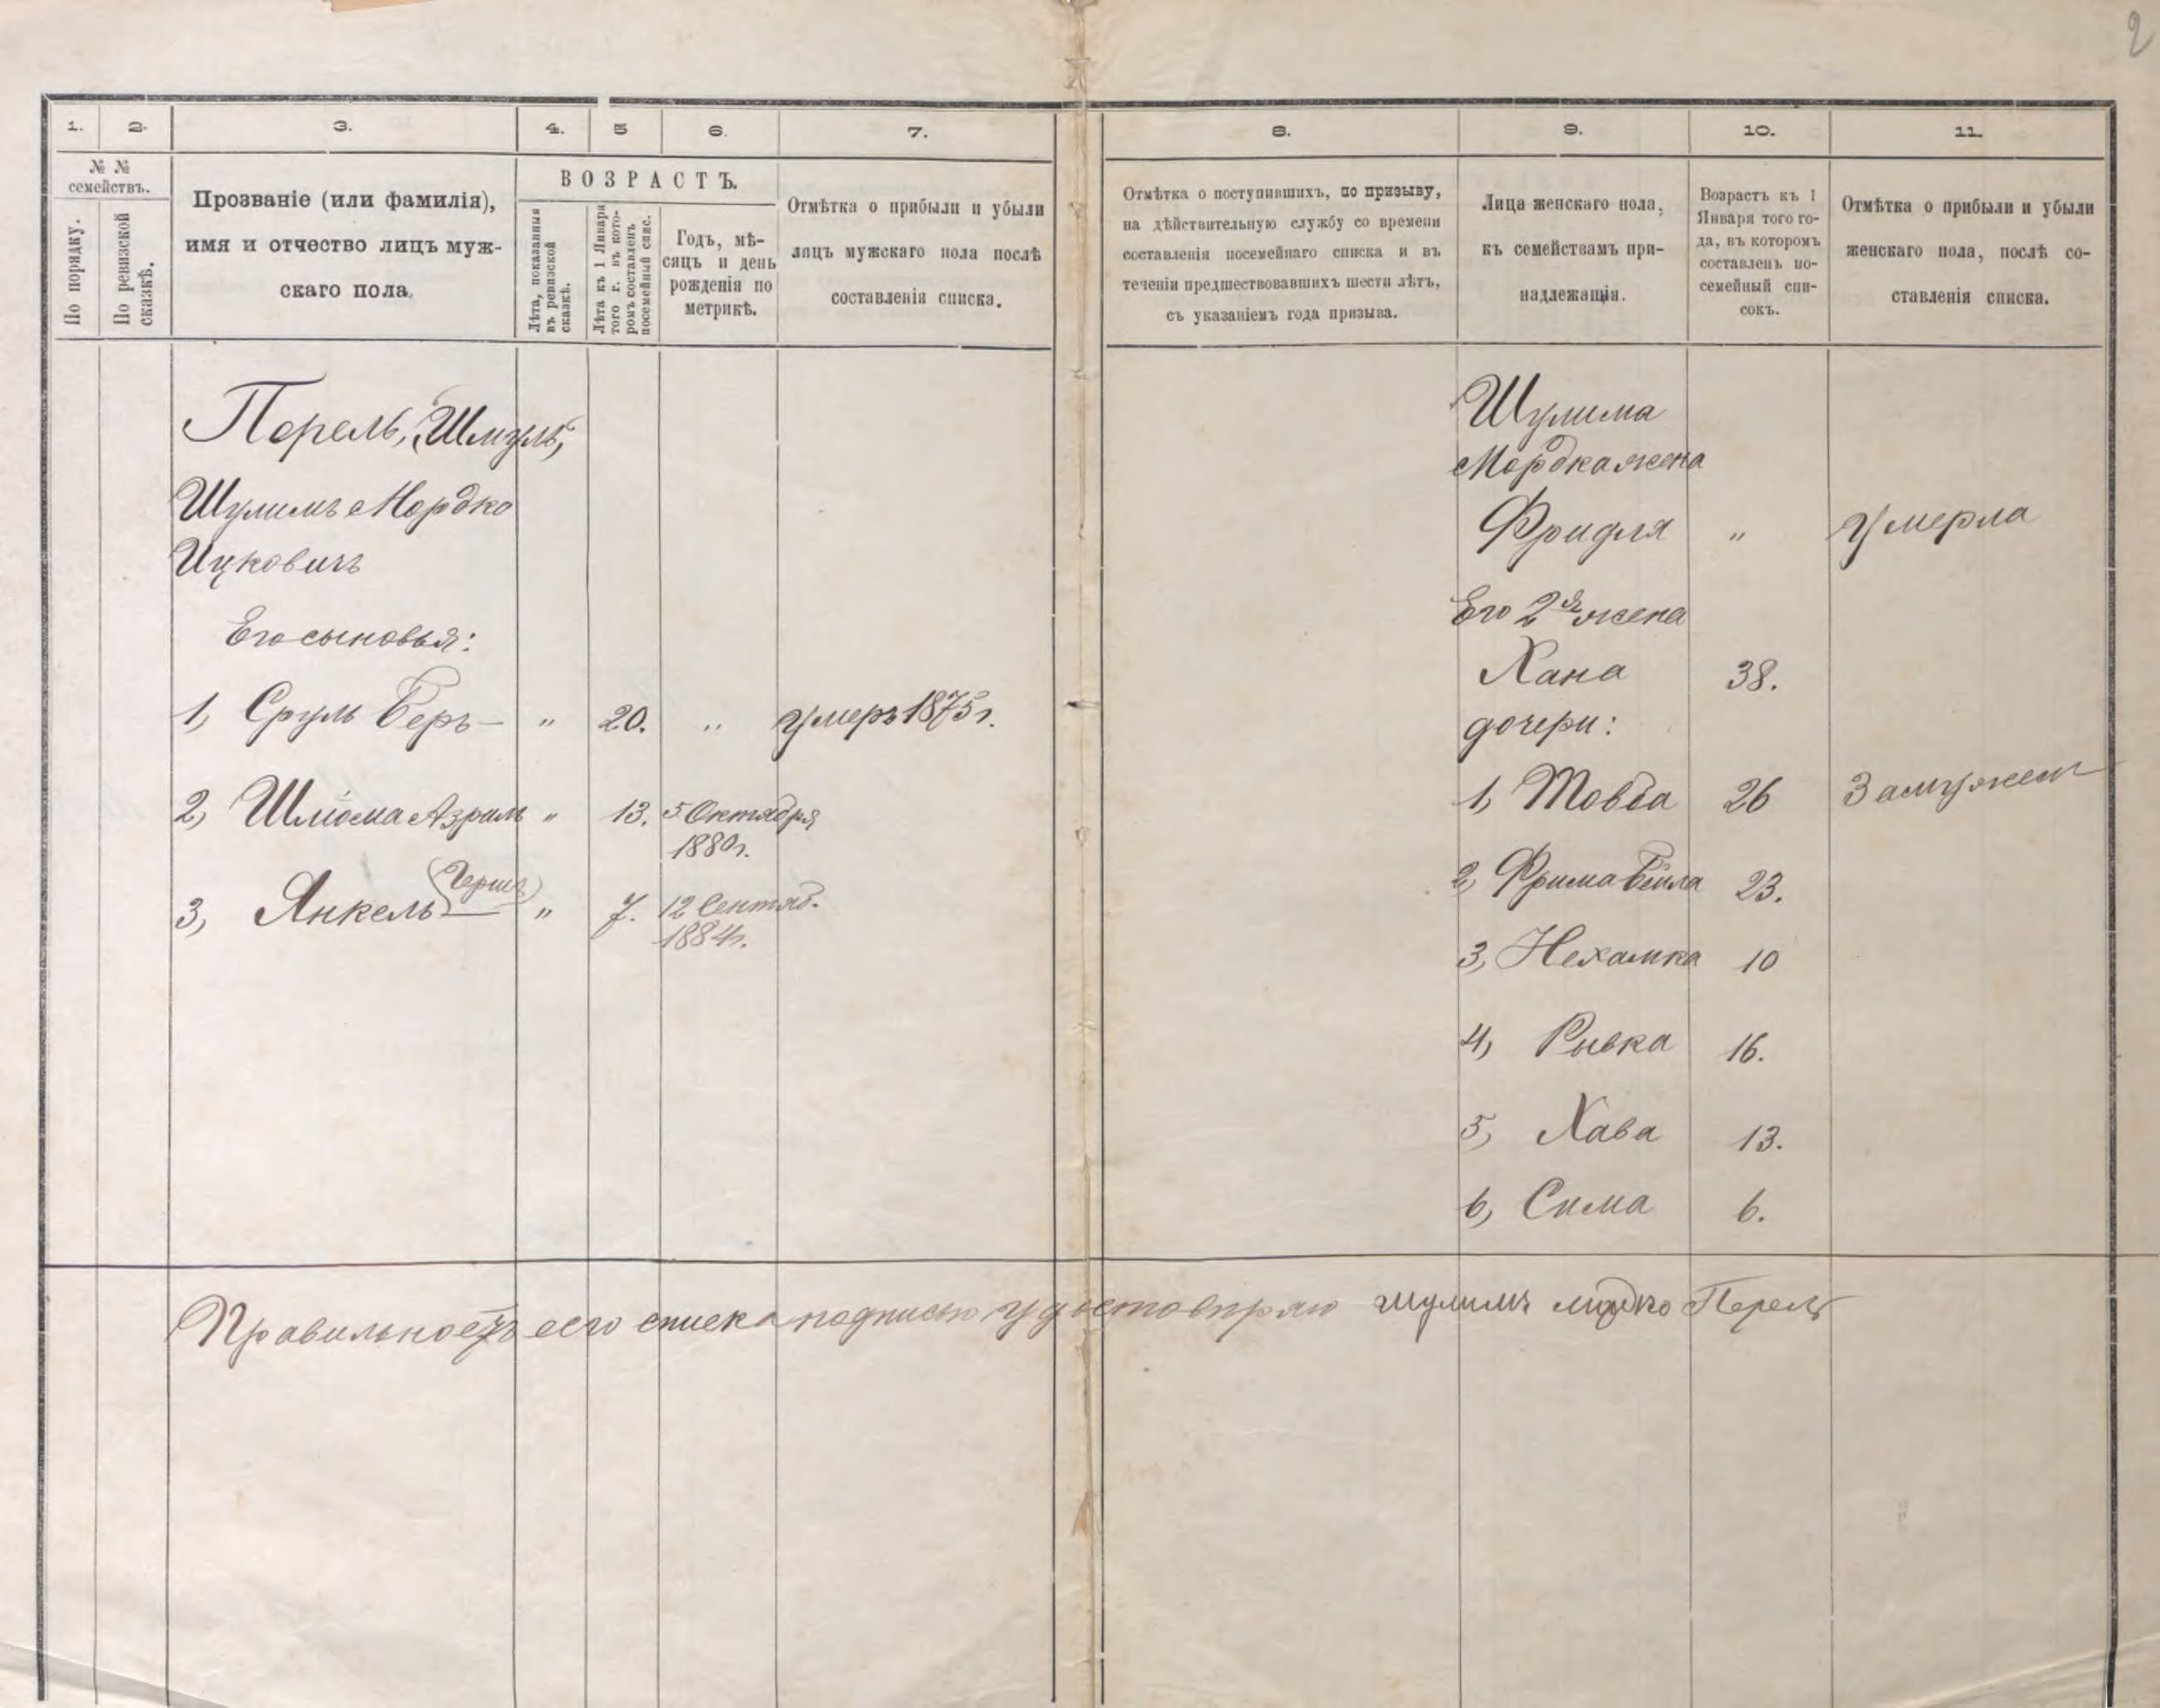 2
1.
2.
3.
4.
5
6.
7.
8.
9.
10.
11.
№ №
семействъ.
По порядку.
По ревизской
сказкѣ.
Прозваніе (или фамилія),
имя и отчество лицъ муж-
скаго пола.
ВОЗРАСТЪ.
Лѣта, показанныя
въ ревизской
сказкѣ.
Лѣта къ 1 Января
того г. въ кото-
ромъ составленъ
посемейный спис.
Годъ, мѣ-
сяцъ и день
рожденія по
метрикѣ.
Отмѣтка о прибыли и убыли
лицъ мужскаго пола послѣ
составленія списка.
Отмѣтка о поступившихъ, по призыву,
на дѣйствительную службу со времени
составленія посемейнаго списка и въ
теченіи предшествовавшихъ шести лѣтъ,
съ указаніемъ года призыва.
Лица женскаго пола,
къ семействамъ при-
надлежащія.
Возрастъ къ 1
Января того го-
да, въ которомъ
составленъ по-
семейный спи-
сокъ.
Отмѣтка о прибыли и убыли
женскаго пола, послѣ со-
ставленія списка.
Перель, Шмуль,
Шулимъ Мордко
Ицковичъ
Его сыновья:
1, Сруль Беръ — " 20. " умеръ 1875 г.
2, Шліома Азраль " 13. 5 Октября
1880 г.
(Гершъ)
3, Янкель — " 7. 12 Сентяб.
1884 г.
Шулима
Мордка жена
Фридля " умерла
Его 2я жена
Хана 38.
дочери:
1, Товба 26 Замужем
2, Фрима Бейла 23.
3, Нехамка 10
4, Рывка 16.
5, Хава 13.
6, Сима 6.
Правильность сего списка подписью удостовѣряю шулимъ мордко Перель